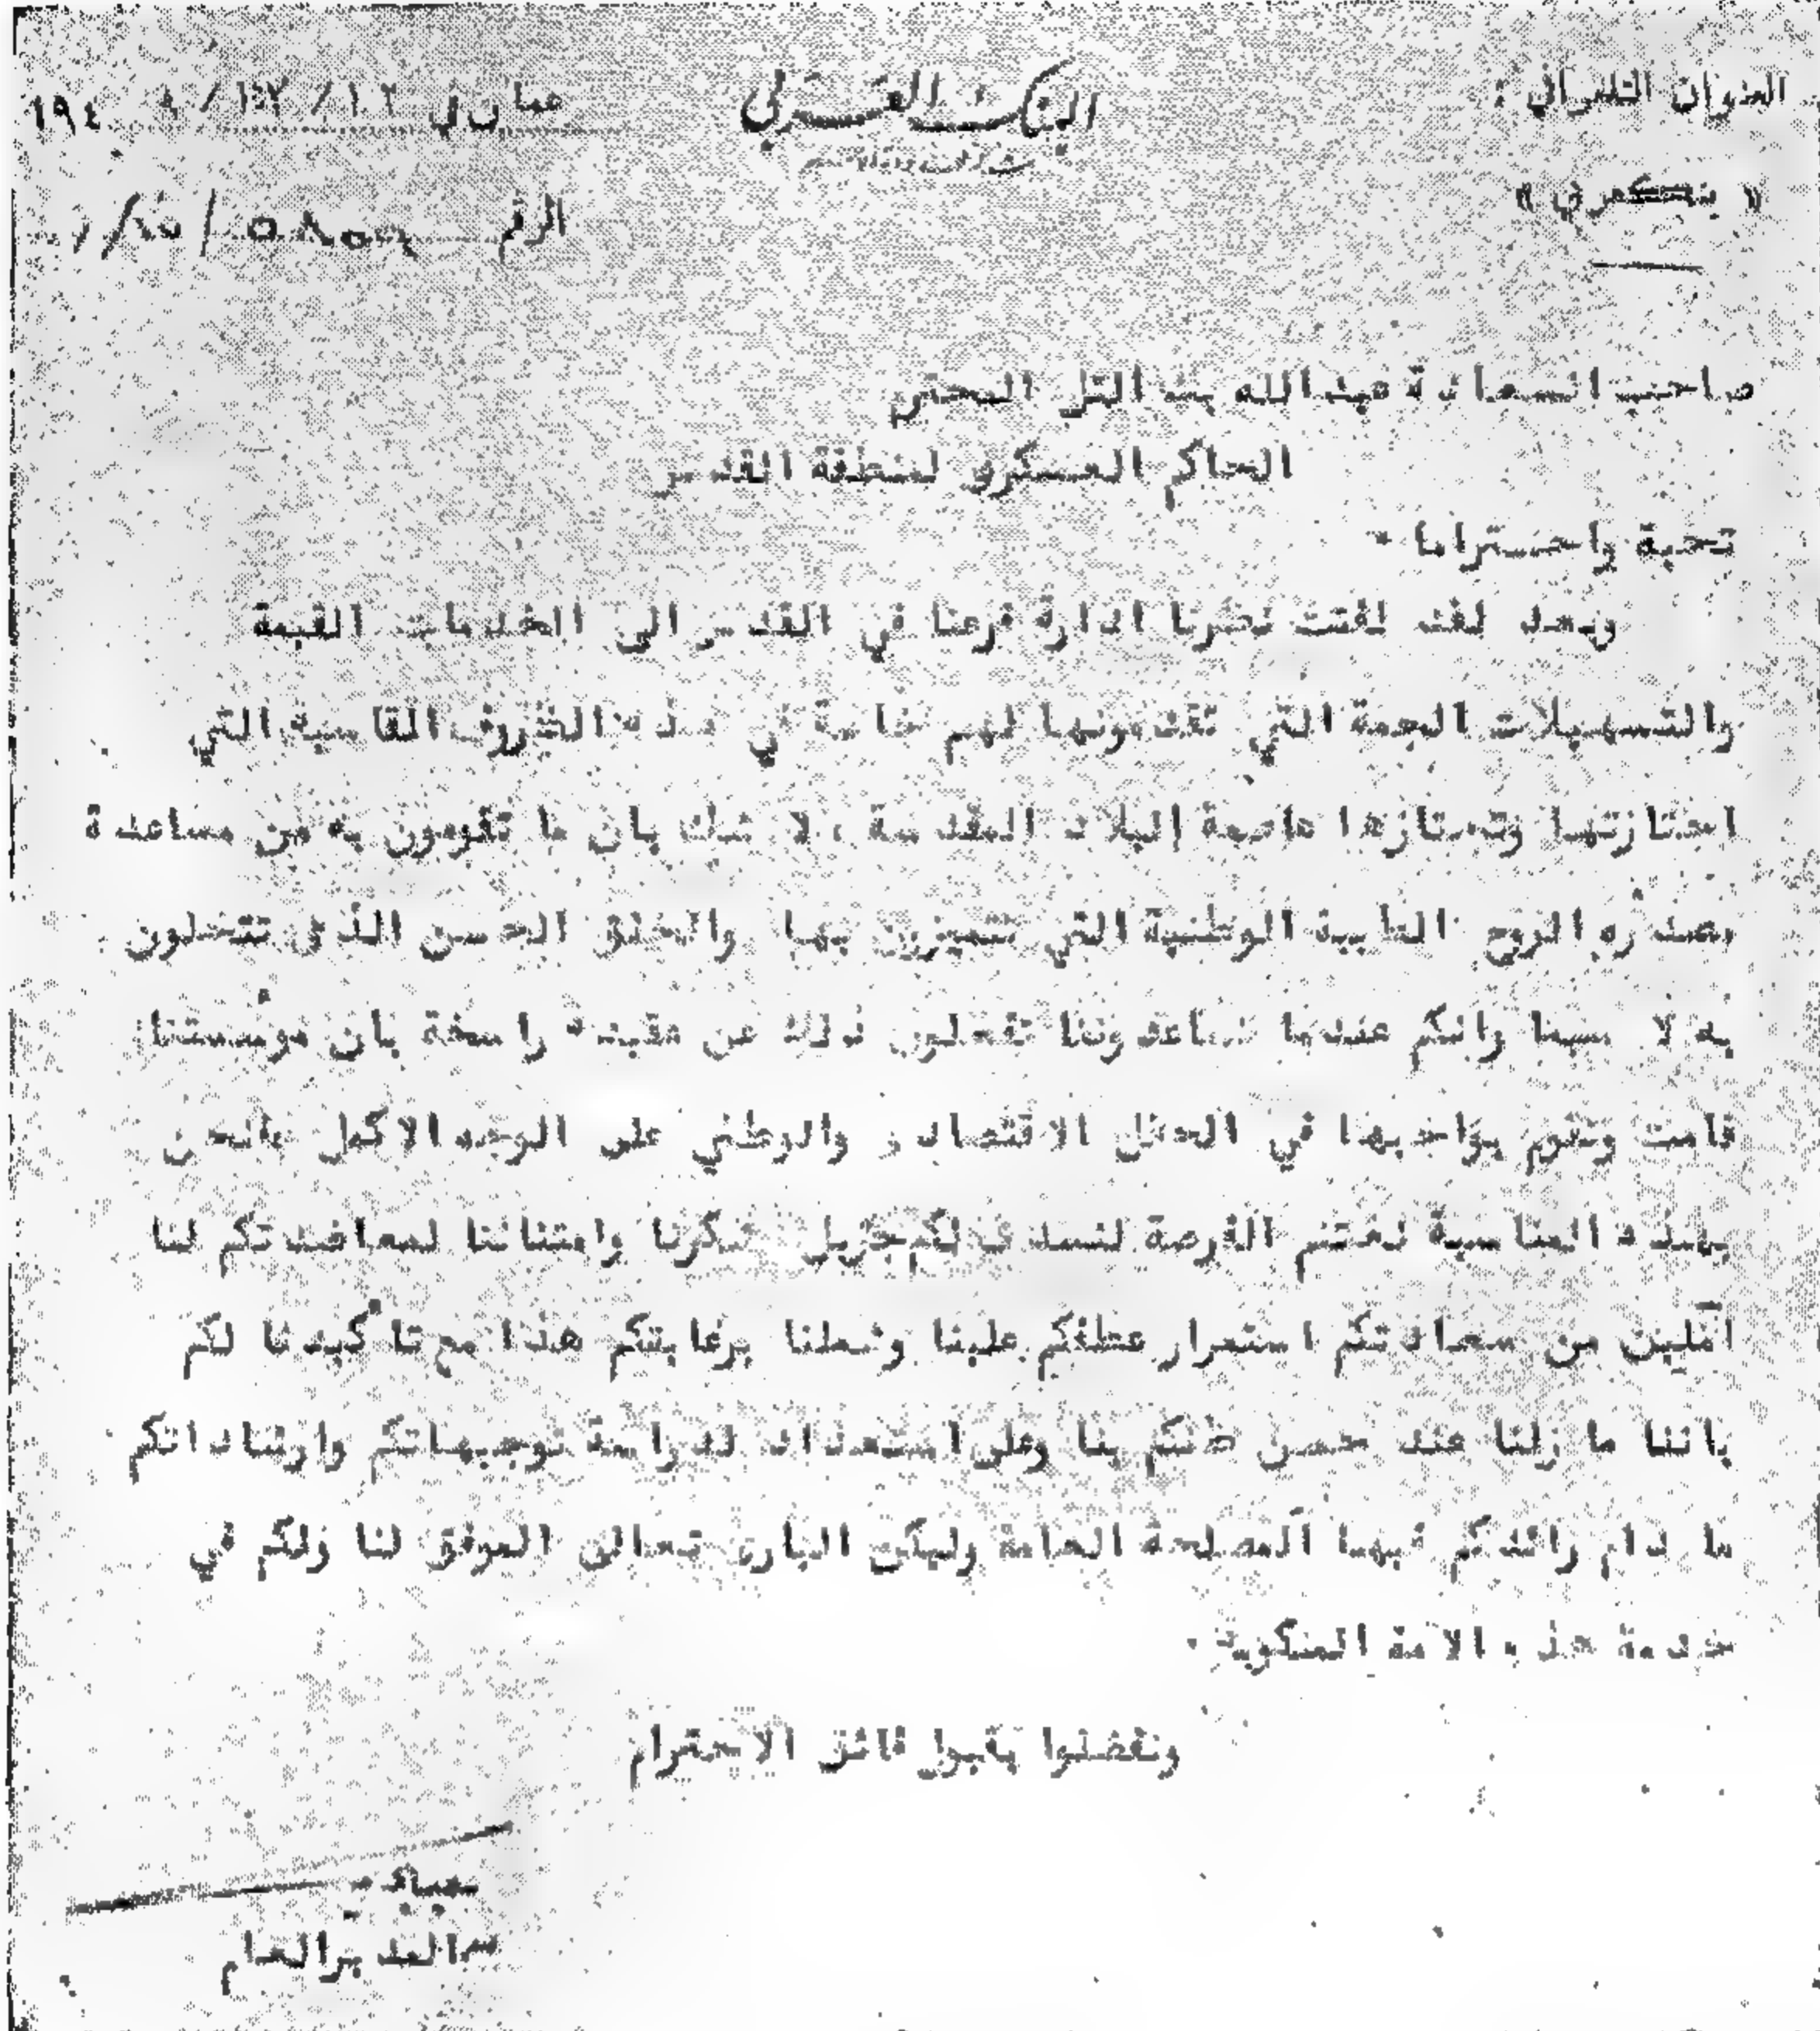 العنوان التلغرافي :
« بنكعربي »
البنك العربي
عمان في
الرقم
صاحب السعادة عبدالله بك التل المحترم
الحاكم العسكرى لمنطقة القدس
تحية واحتراما
وبعد لقد لفتت نظرنا ادارة فرعنا في القدس الى الخدمات القيمة
والتسهيلات الجمة التي تقدمونها لهم خاصة في هذه الظروف القاسية التي
اجتازتها وتجتازها عاصمة البلاد المقدسة ، لا شك بان ما تقومون به من مساعدة
مصدره الروح الطيبة الوطنية التي تتميزون بها والخلق الحسن الذى تتحلون
به لا سيما وانكم عندما تساعدوننا تفعلون ذلك عن عقيدة راسخة بان مؤسستنا
قامت وتقوم بواجبها في الحقل الاقتصادى والوطني على الوجه الاكمل
بهذه المناسبة نغتنم الفرصة لنسدى لكم جزيل شكرنا وامتناننا لمعاضدتكم لنا
آملين من سعادتكم استمرار عطفكم علينا وشملنا برعايتكم هذا مع تأكيدنا لكم
باننا ما زلنا عند حسن ظنكم بنا وعلى استعداد لدراسة توجيهاتكم وارشاداتكم
ما دام رائدكم فيها المصلحة العامة وليكن البارى تعالى الموفق لنا ولكم في
خدمة هذه الامة المنكوبة ٠
وتفضلوا بقبول فائق الاحترام
المدير العام